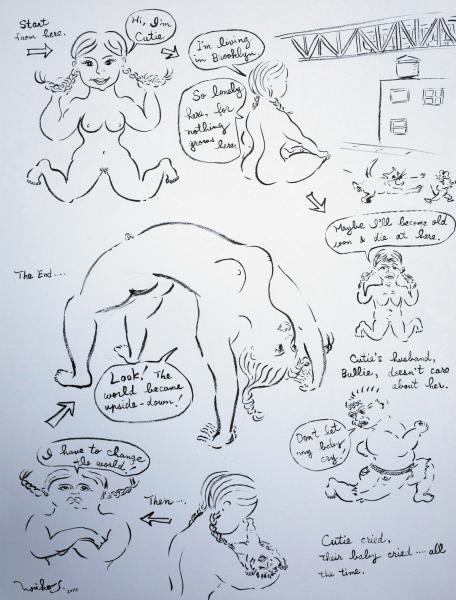 Start
from here.
Hi, I'm
Cutie
I'm living
in Brooklyn.
So lonely
here, for
nothing
grows here.
Maybe I'll become old
soon & die at here.
Cutie's husband,
Bullie, doesn't care
about her.
Don't let
my baby
cry!
Cutie cried,
their baby cried .... all
the time.
Then....
I have to change
the world!
Look! The
world became
upside-down!
The End....
Noriko S. 2011